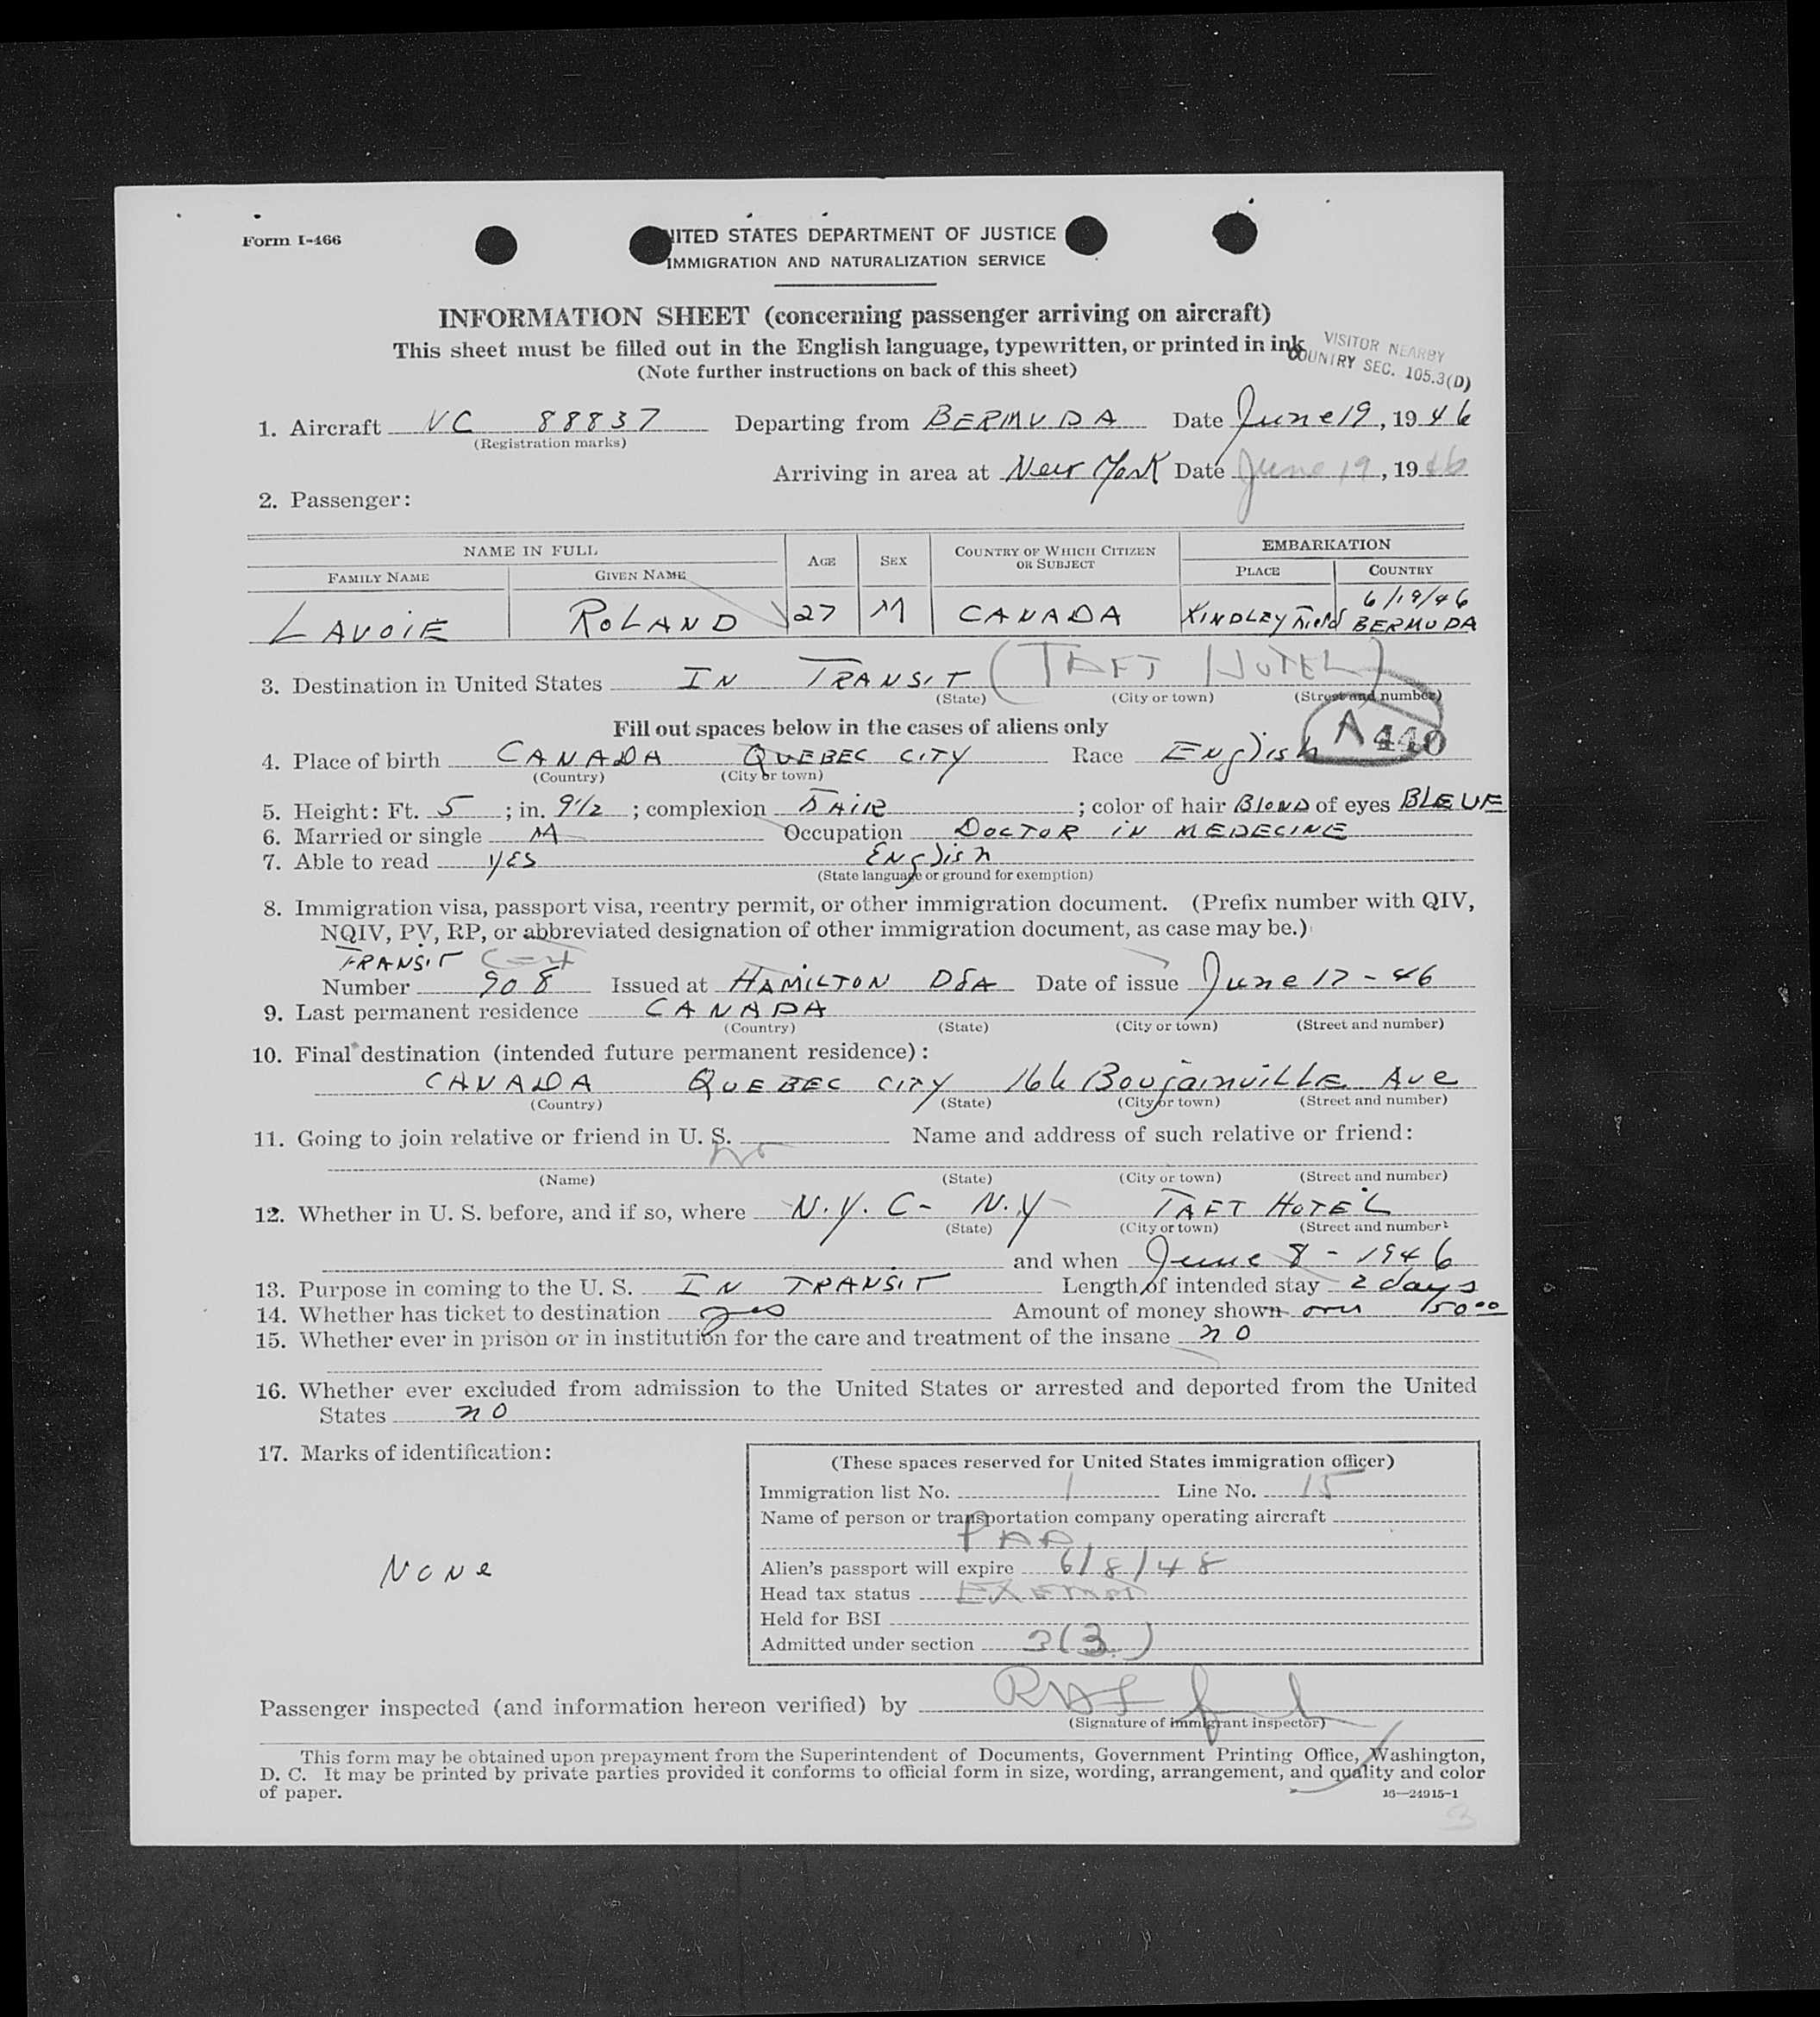 Form I-466
UNITED STATES DEPARTMENT OF JUSTICE
IMMIGRATION AND NATURALIZATION SERVICE
INFORMATION SHEET (concerning passenger arriving on aircraft)
This sheet must be filled out in the English language, typewritten, or printed in ink
VISITOR NEARBY
COUNTRY SEC. 105.3(D)
(Note further instructions on back of this sheet)
1. Aircraft VC 88837 Departing from BERMUDA Date June 19, 1946
(Registration marks)
Arriving in area at New York Date June 19, 1946
2. Passenger:
NAME IN FULL AGE SEX COUNTRY OF WHICH CITIZEN OR SUBJECT EMBARKATION
FAMILY NAME GIVEN NAME PLACE COUNTRY
6/19/46
LAVOIE ROLAND 27 M CANADA KINDLEY Field BERMUDA
3. Destination in United States IN TRANSIT (TAFT HOTEL)
(State) (City or town) (Street and number)
Fill out spaces below in the cases of aliens only
A 440
4. Place of birth CANADA QUEBEC CITY Race English
(Country) (City or town)
5. Height: Ft. 5 ; in. 9 1/2 ; complexion FAIR ; color of hair BLOND of eyes BLEUE
6. Married or single M Occupation DOCTOR IN MEDECINE
7. Able to read YES English
(State language or ground for exemption)
8. Immigration visa, passport visa, reentry permit, or other immigration document. (Prefix number with QIV,
NQIV, PV, RP, or abbreviated designation of other immigration document, as case may be.)
TRANSIT
Number 908 Issued at HAMILTON Date of issue June 17-46
9. Last permanent residence CANADA
(Country) (State) (City or town) (Street and number)
10. Final destination (intended future permanent residence):
CANADA QUEBEC CITY 166 Bougainville Ave
(Country) (State) (City or town) (Street and number)
11. Going to join relative or friend in U. S. No Name and address of such relative or friend:
(Name) (State) (City or town) (Street and number)
12. Whether in U. S. before, and if so, where N.Y.C - N.Y TAFT HOTEL
(State) (City or town) (Street and number)
and when June 8 - 1946
13. Purpose in coming to the U. S. IN TRANSIT Length of intended stay 2 days
14. Whether has ticket to destination yes Amount of money shown over 150 00
15. Whether ever in prison or in institution for the care and treatment of the insane no
16. Whether ever excluded from admission to the United States or arrested and deported from the United
States no
17. Marks of identification:
None
(These spaces reserved for United States immigration officer)
Immigration list No. 1 Line No. 15
Name of person or transportation company operating aircraft
PAA
Alien's passport will expire 6/8/48
Head tax status EXEMPT
Held for BSI
Admitted under section 3(3)
Passenger inspected (and information hereon verified) by
(Signature of immigrant inspector)
This form may be obtained upon prepayment from the Superintendent of Documents, Government Printing Office, Washington,
D. C. It may be printed by private parties provided it conforms to official form in size, wording, arrangement, and quality and color
of paper.
16—24915-1